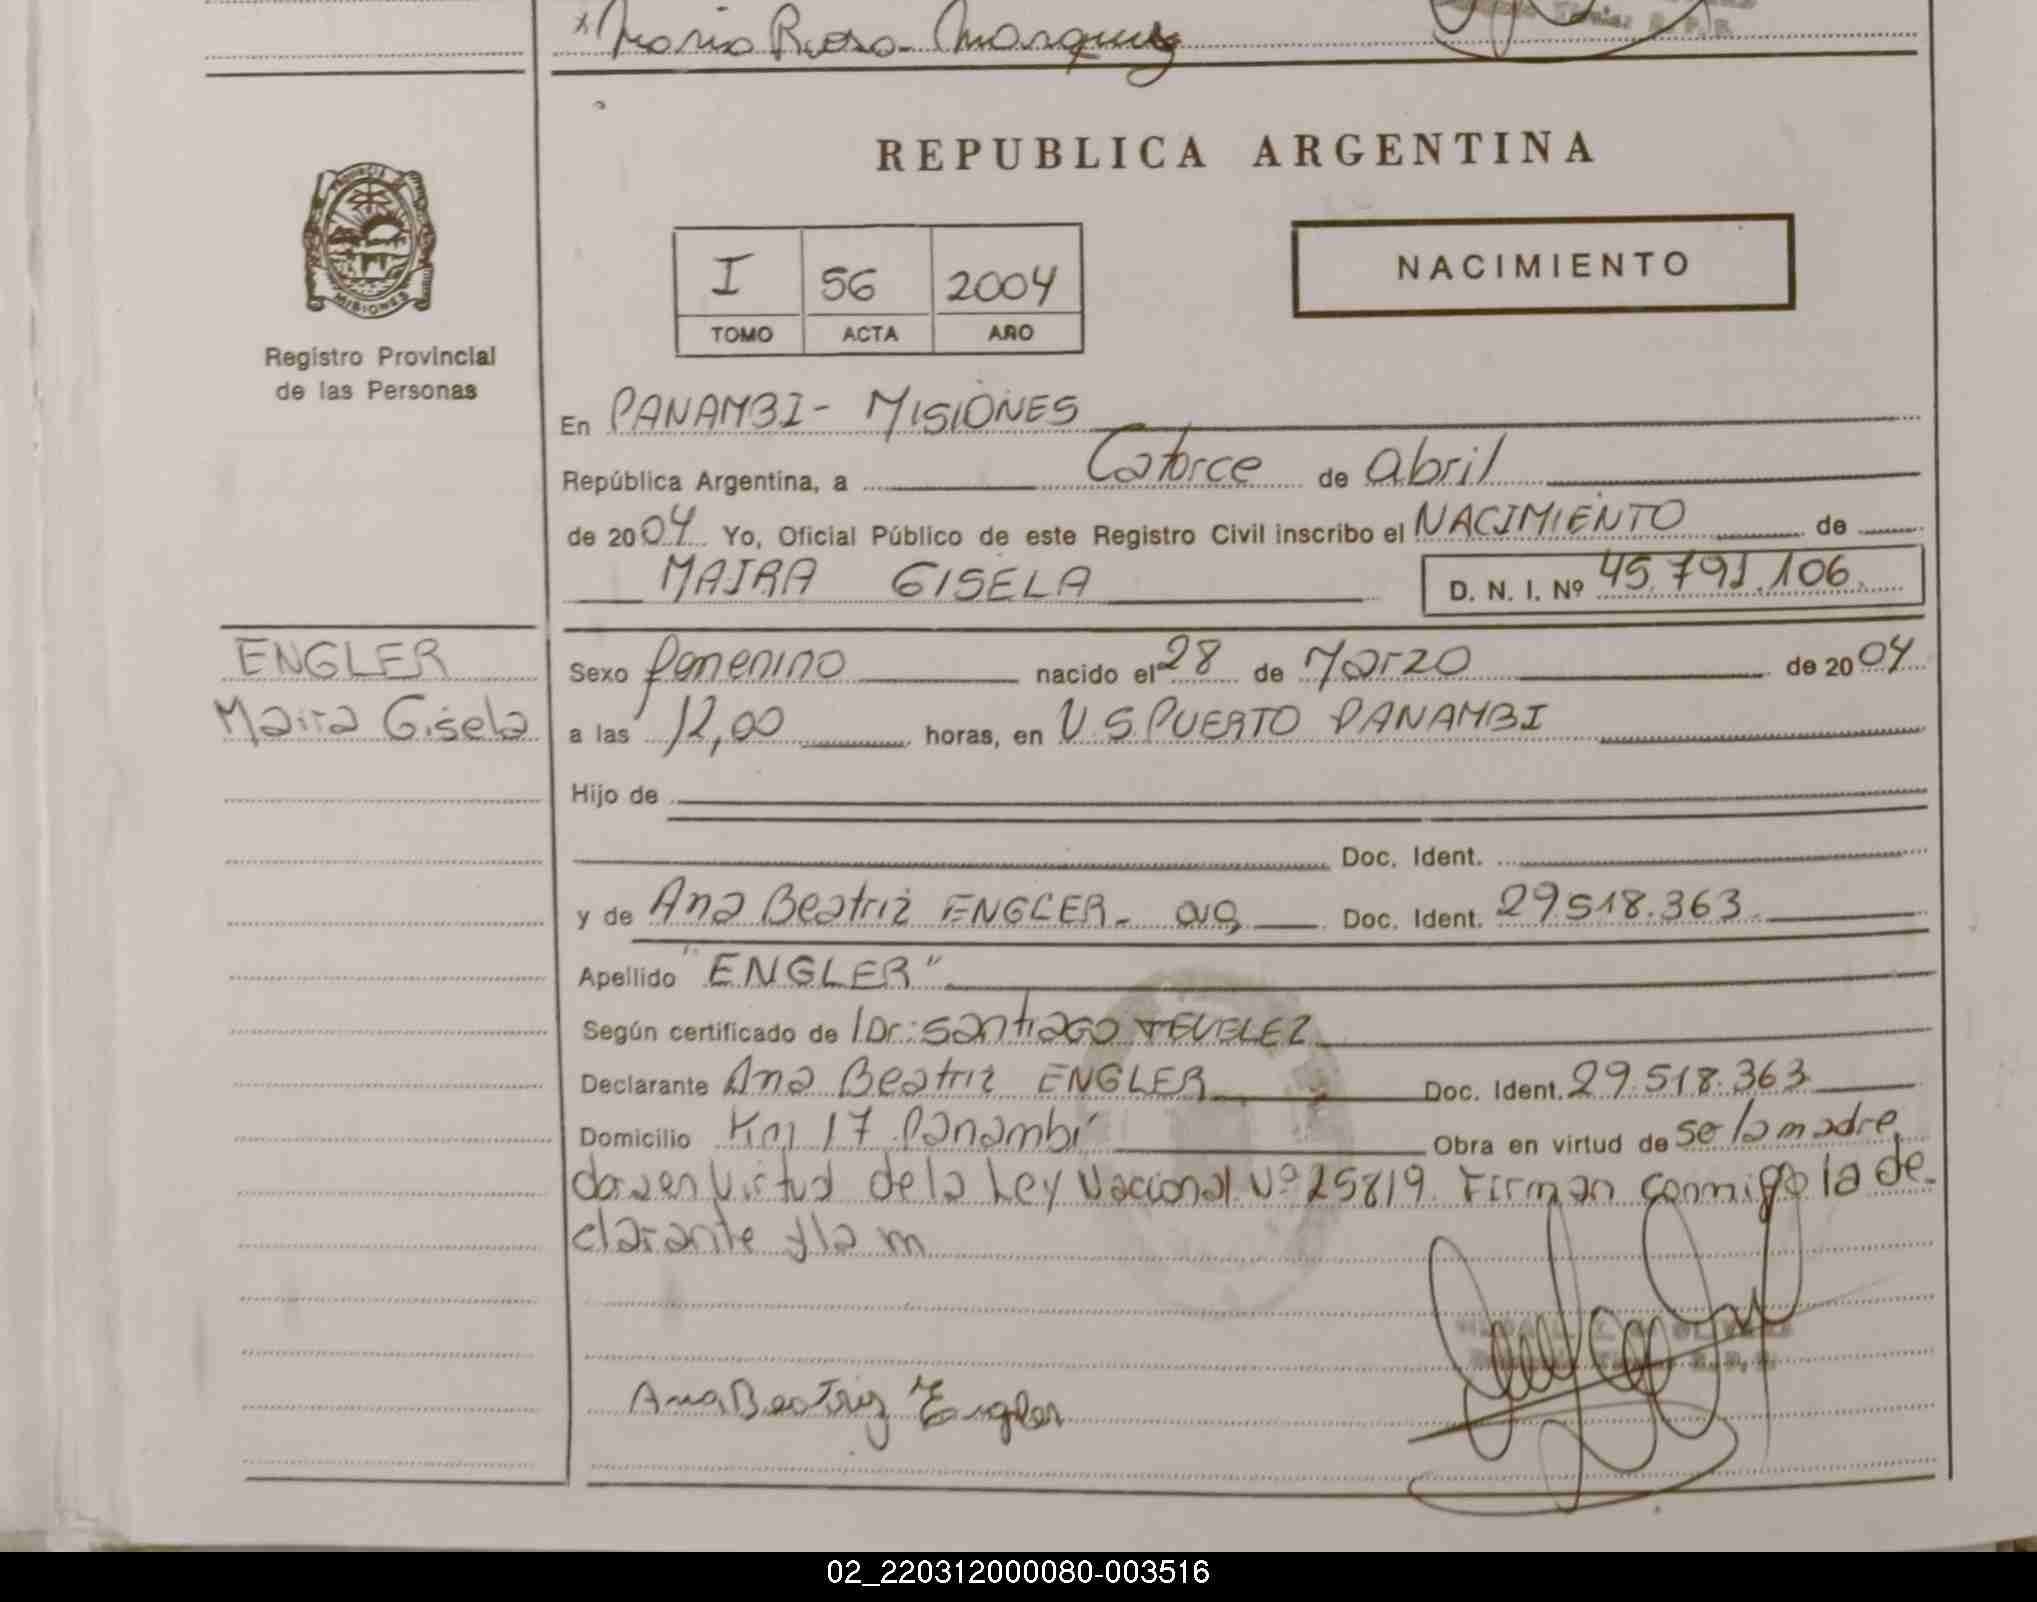 Maria Rosa Marquez
REPUBLICA ARGENTINA
PROVINCIA DE
MISIONES
Registro Provincial
de las Personas
I 56 2004
TOMO ACTA AÑO
NACIMIENTO
En PANAMBI - MISIONES
República Argentina, a Catorce de abril
de 2004 Yo, Oficial Público de este Registro Civil inscribo el NACIMIENTO de
MAIRA GISELA D. N. I. Nº 45.791.106.
ENGLER
Maira Gisela
Sexo femenino nacido el 28 de Marzo de 2004
a las 12,00 horas, en U.S. PUERTO PANAMBI
Hijo de
Doc. Ident.
y de Ana Beatriz ENGLER - Doc. Ident. 29.518.363.
Apellido "ENGLER"
Según certificado de Dr: Santiago TEVELEZ
Declarante Ana Beatriz ENGLER Doc. Ident. 29.518.363
Domicilio Km 17 Panambí Obra en virtud de se la madre
en virtud de la Ley Nacional Nº 25819. Firman conmigo la de-
clarante y la m
Ana Beatriz Engler
02_220312000080-003516